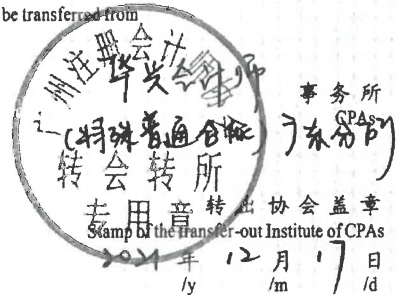 be transferred from
广州注册会计师
华兴会计师
事务所
CPAs
(特殊普通合伙)广东分所
转会转所
专用章
转出协会盖章
Stamp of the transfer-out Institute of CPAs
2021 年 12 月 17 日
/y /m /d